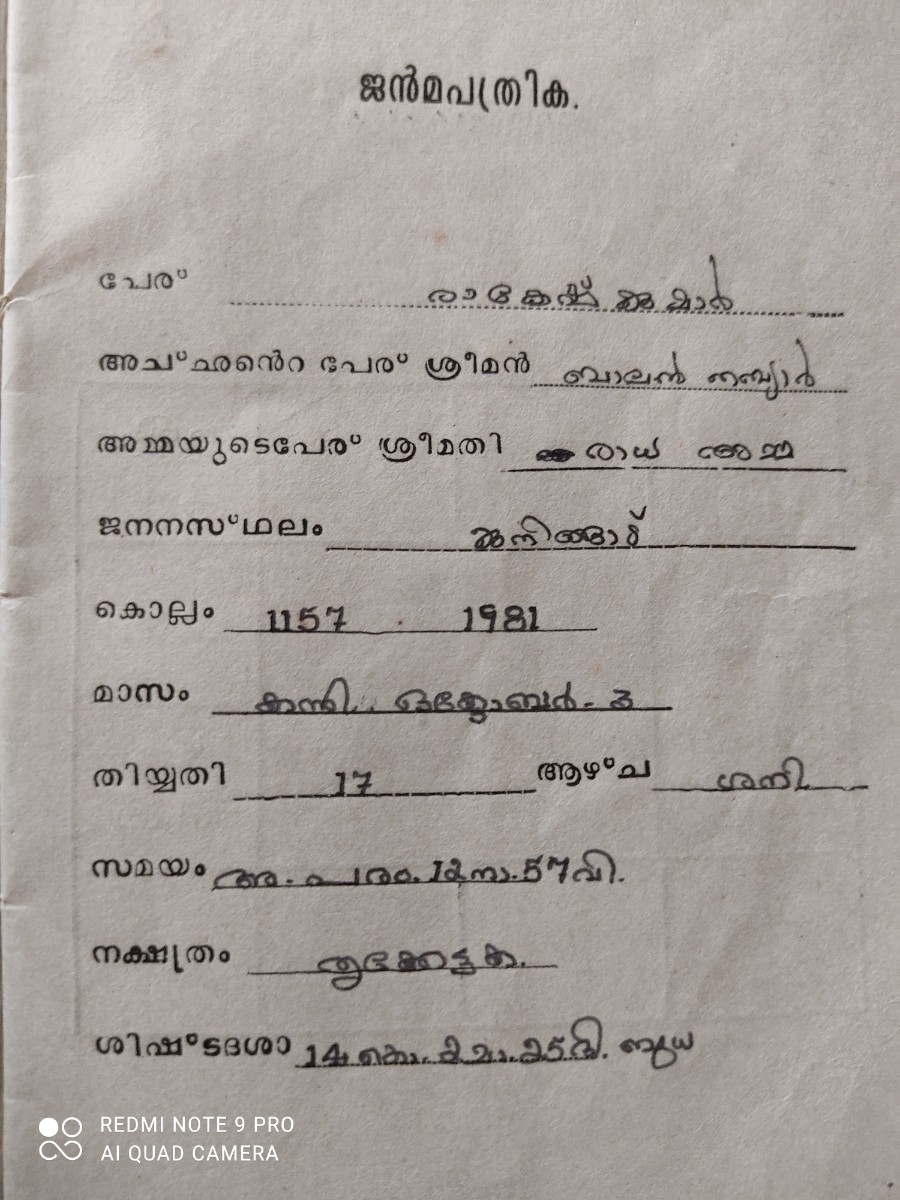 ജൻമപത്രിക.
പേര് രാകേഷ് കുമാർ
അച്ഛൻെറ പേര് ശ്രീമൻ ബാലൻ നമ്പ്യാർ
അമ്മയുടെപേര് ശ്രീമതി രാധ അമ്മ
ജനനസ്ഥലം
കൊല്ലം 1157 . 1981
മാസം കന്നി.. ഒക്ടോബർ - 3
തിയ്യതി 17 ആഴ്ച ശനി
സമയം അ. പരം. 12 നാ. 57 വി.
നക്ഷത്രം തൃക്കേട്ട ക.
ശിഷ്ടദശാ 14 കൊ. 2 മാ. 25 ദി. ബുധ
REDMI NOTE 9 PRO
AI QUAD CAMERA